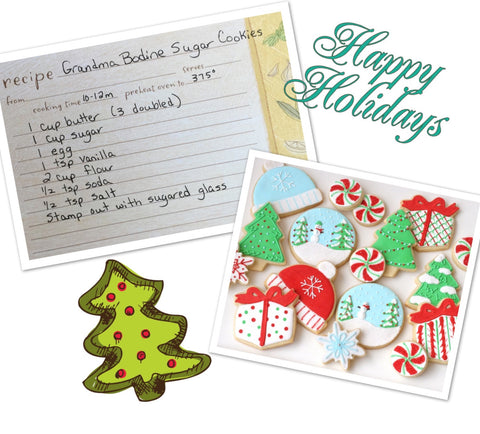 recipe Grandma Bodine Sugar Cookies
from serves
cooking time 10-12m preheat oven to 375°
1 cup butter (3 doubled)
1 cup sugar
1 egg
1 tsp vanilla
2 cup flour
1/2 tsp soda
1/2 tsp salt
Stamp out with sugared glass
Happy
Holidays